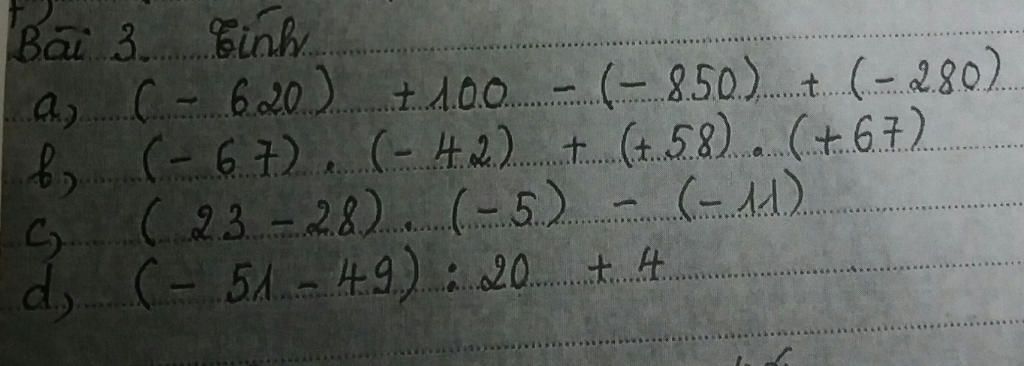 Bài 3. Tính
a, (- 620) + 100 - (- 850) + (- 280)
b, (- 67) . (- 42) + (+ 58) . (+ 67)
c, (23 - 28) . (- 5) - (- 11)
d, (- 51 - 49) : 20 + 4